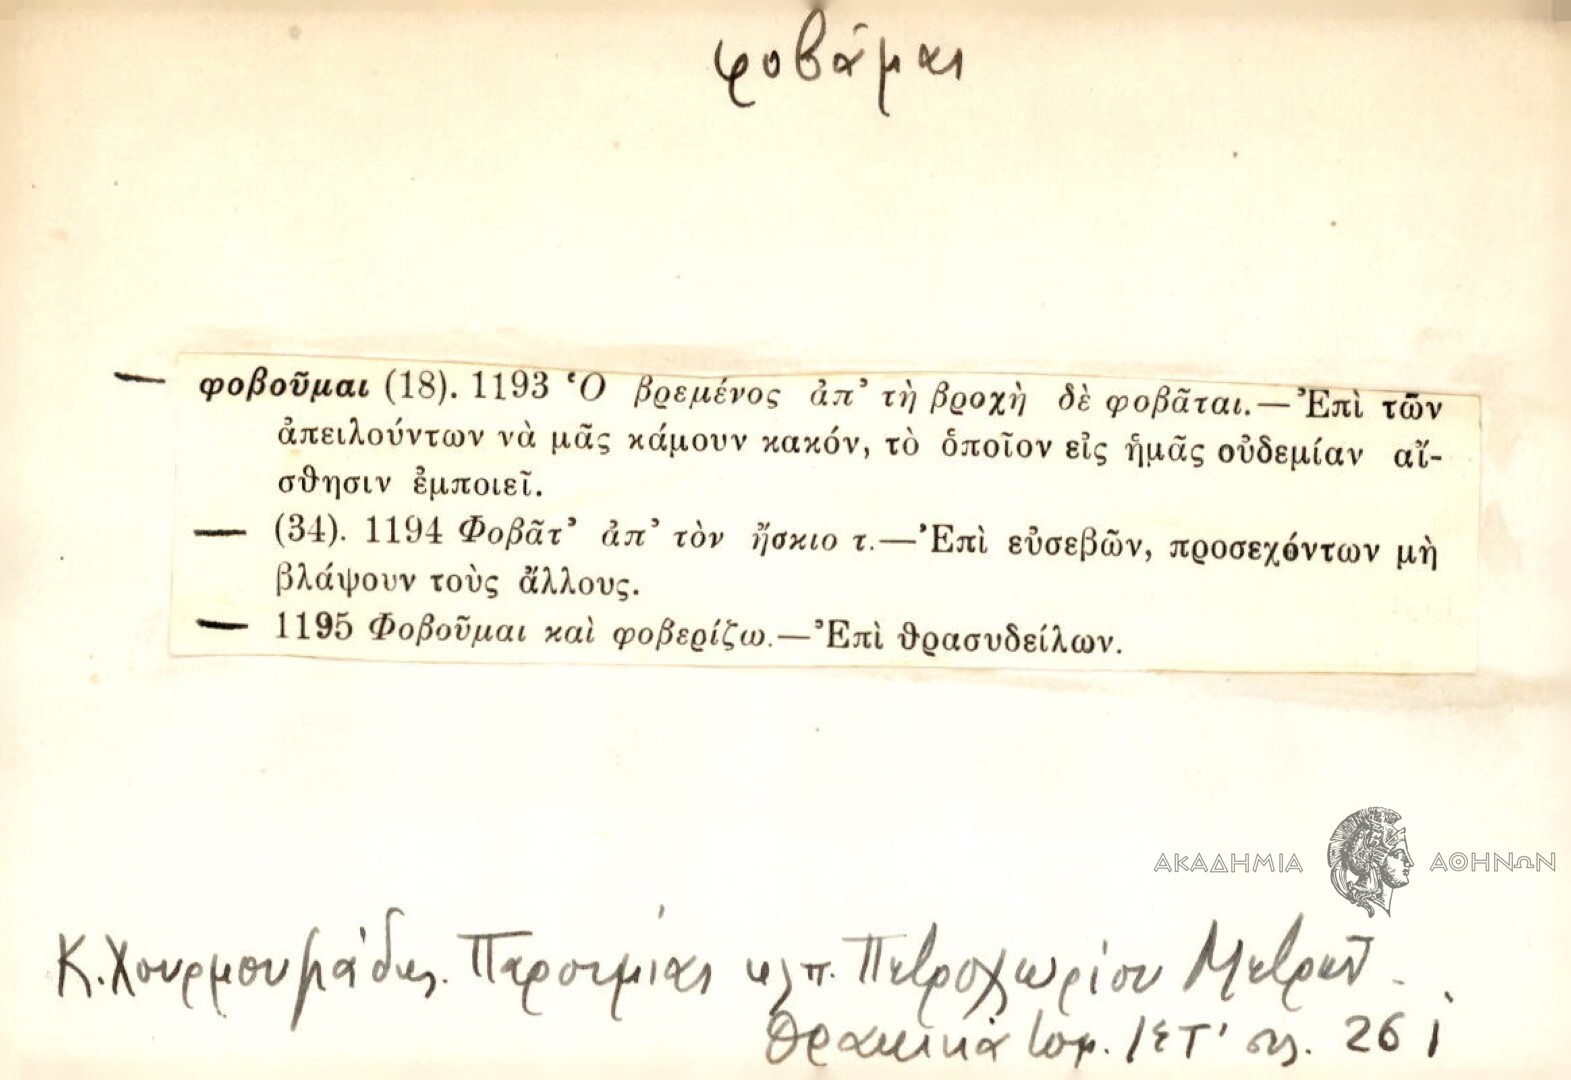 φοβᾶμαι
— φοβοῦμαι (18). 1193 Ὁ βρεμένος ἀπ’ τὴ βροχὴ δὲ φοβᾶται.—Ἐπὶ τῶν
ἀπειλούντων νὰ μᾶς κάμουν κακόν, τὸ ὁποῖον εἰς ἡμᾶς οὐδεμίαν αἴ-
σθησιν ἐμποιεῖ.
— (34). 1194 Φοβᾶτ’ ἀπ’ τὸν ἤσκιο τ.—Ἐπὶ εὐσεβῶν, προσεχόντων μὴ
βλάψουν τοὺς ἄλλους.
— 1195 Φοβοῦμαι καὶ φοβερίζω.—Ἐπὶ θρασυδείλων.
ΑΚΑΔΗΜΙΑ ΑΘΗΝΩΝ
Κ. Χουρμουζιάδης. Παροιμίαι κλπ. Πετροχωρίου Μετρῶν.
Θρακικὰ τομ. ΙΣΤ' σελ. 261